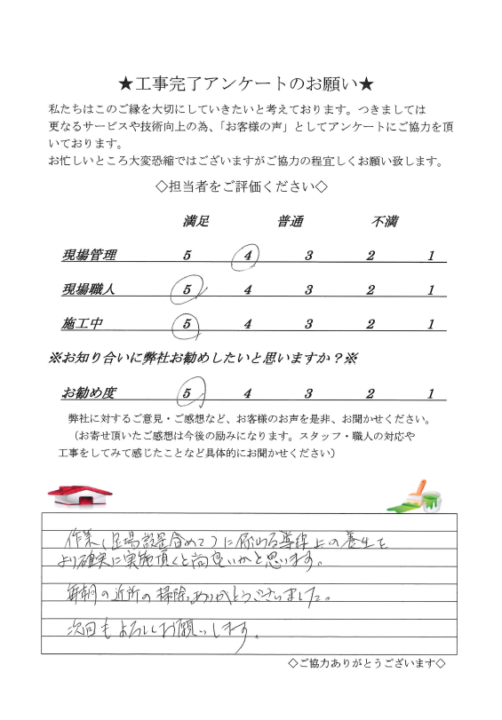 ★工事完了アンケートのお願い★
私たちはこのご縁を大切にしていきたいと考えております。つきましては
更なるサービスや技術向上の為、「お客様の声」としてアンケートにご協力を頂
いております。
お忙しいところ大変恐縮ではございますがご協力の程宜しくお願い致します。
◇担当者をご評価ください◇
満足 普通 不満
現場管理 5 4 3 2 1
現場職人 5 4 3 2 1
施工中 5 4 3 2 1
※お知り合いに弊社お勧めしたいと思いますか？※
お勧め度 5 4 3 2 1
弊社に対するご意見・ご感想など、お客様のお声を是非、お聞かせください。
（お寄せ頂いたご感想は今後の励みになります。スタッフ・職人の対応や
工事をしてみて感じたことなど具体的にお聞かせください）
作業(足場設置含めて)に 上の養生を
より確実に実施頂くと尚良いかと思います。
毎朝の近所の掃除ありがとうございました。
次回もよろしくお願いします。
◇ご協力ありがとうございます◇